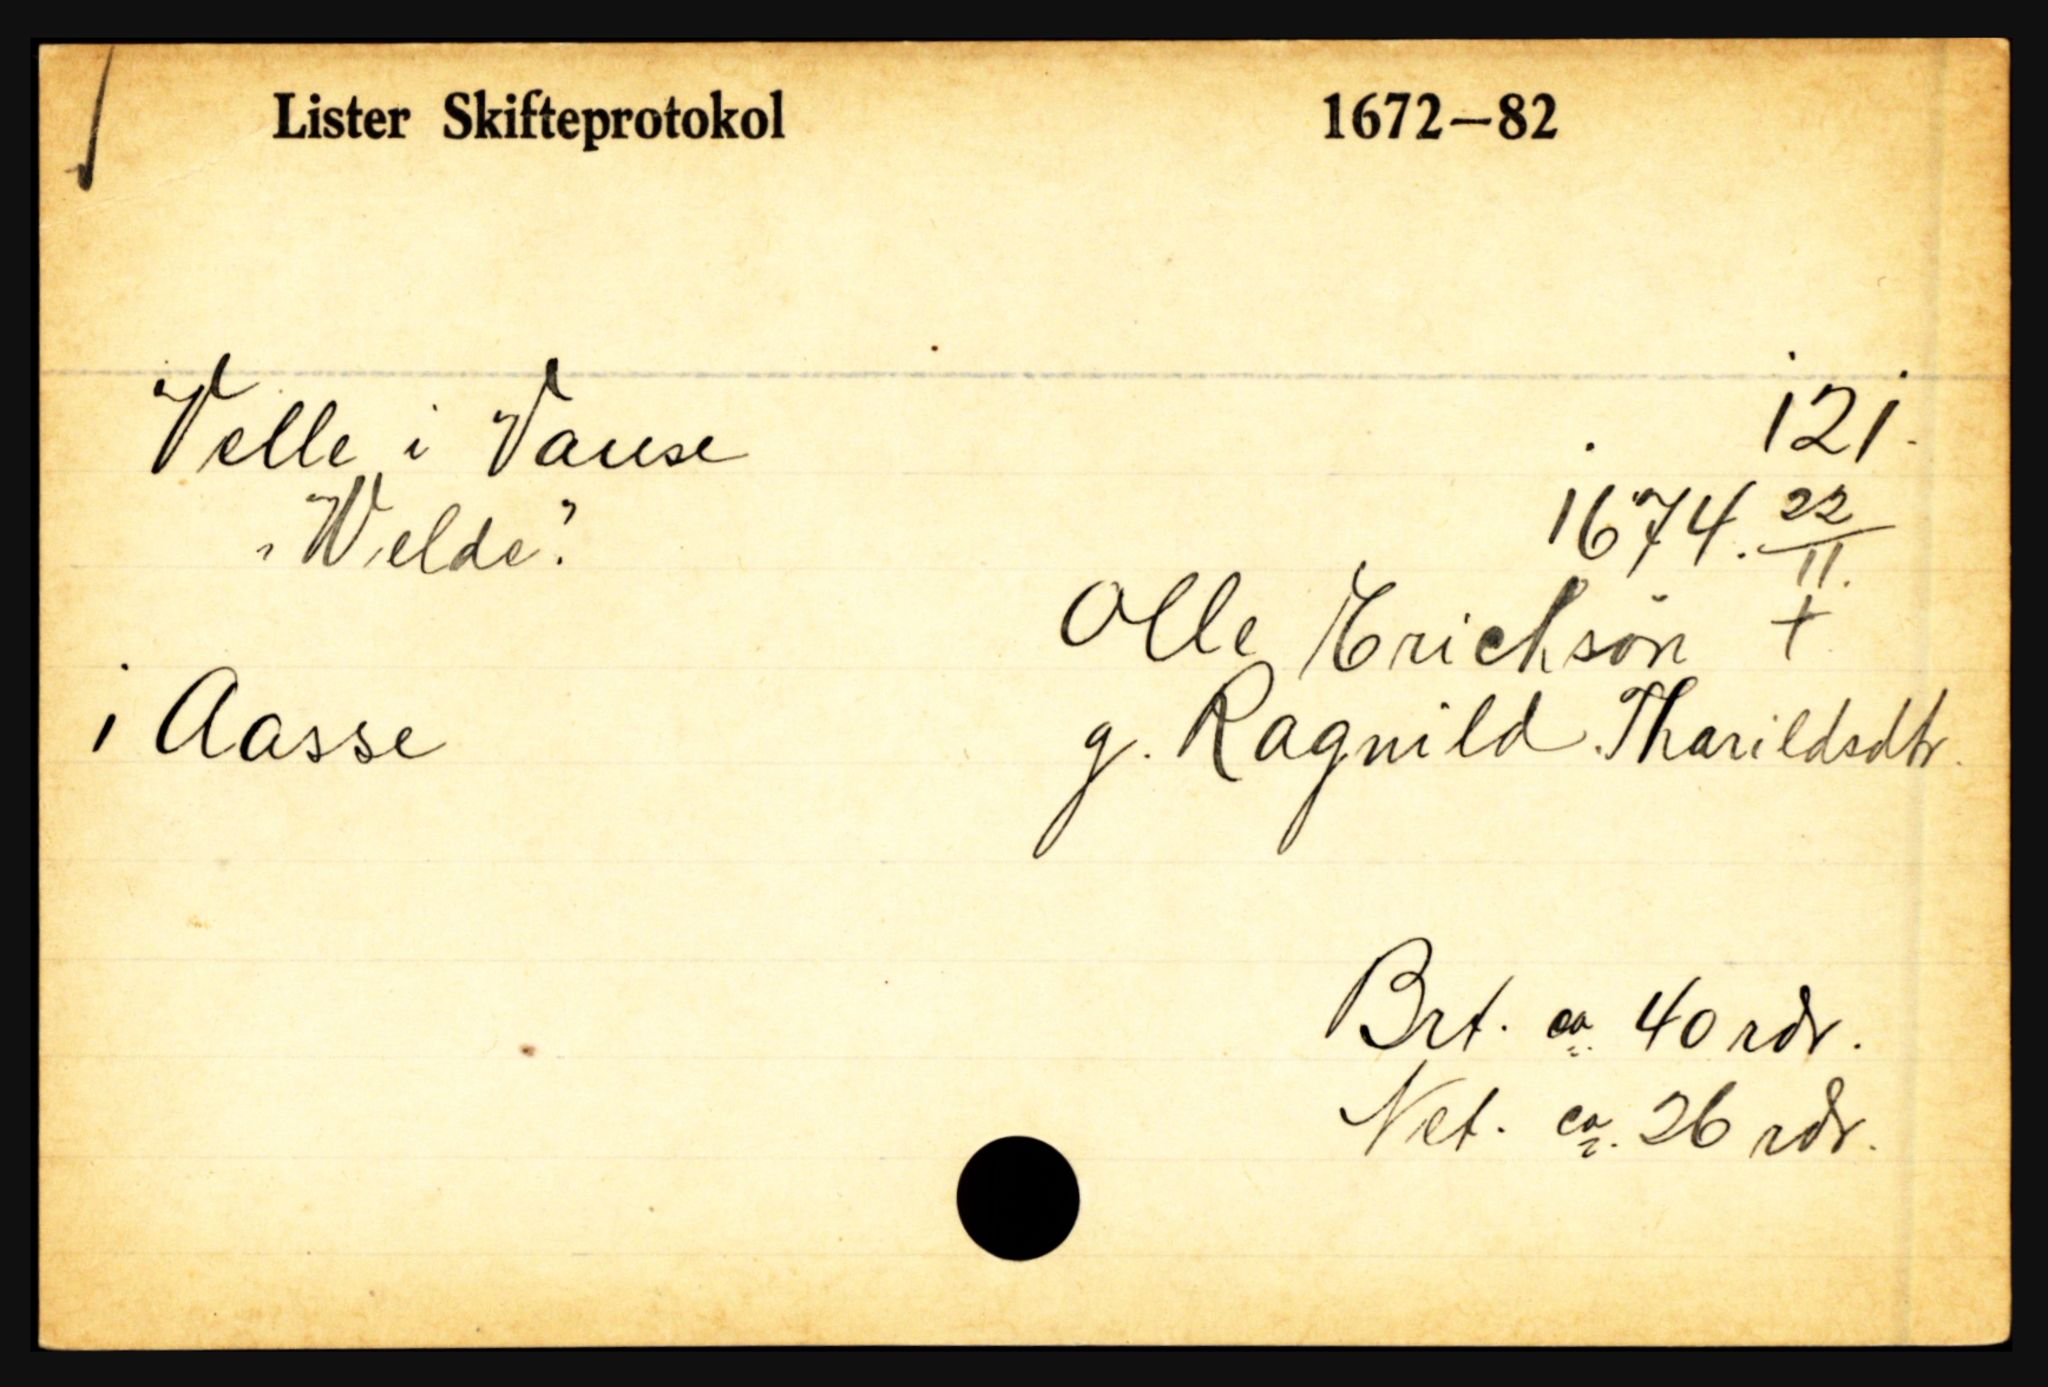 Lister Skifteprotokol 1672–82
Velle i Vanse 121.
"Welde" 1674. 22/11.
Olle Erichsön +
i Aasse g. Ragnild Tharildsdtr.
Brt. ca. 40 rdr.
Net. ca. 26 rdr.